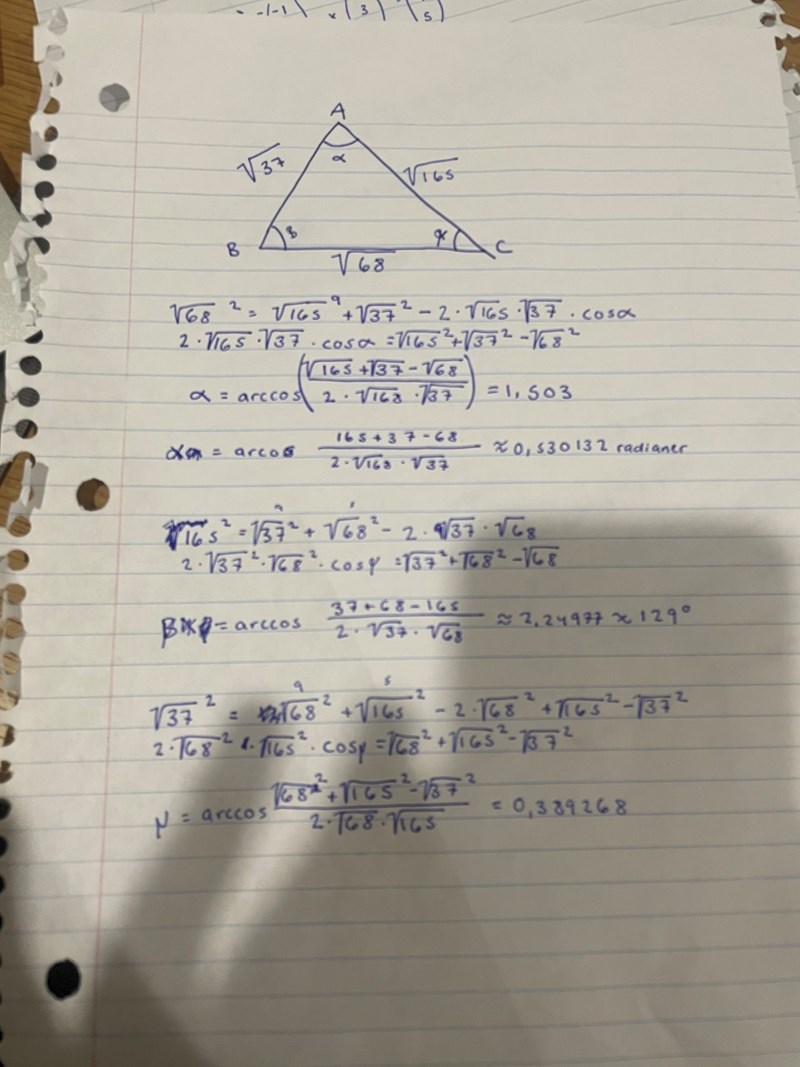 -1-1 x ( 3 ) ( 5 )
A
√37 α √165
B β γ C
√68
√68² = √165² + √37² - 2 · √165 · √37 · cosα
2 · √165 · √37 · cosα = √165² + √37² - √68²
α = arccos( (√165 + √37 - √68) / (2 · √168 · √37) ) = 1,503
α = arccos (165 + 37 - 68) / (2 · √168 · √37) ≈ 0,530132 radianer
√165² = √37² + √68² - 2 · √37 · √68
2 · √37² · √68² · cosφ = √37² + √68² - √68
β = arccos (37 + 68 - 165) / (2 · √37 · √68) ≈ 2,24977 ≈ 129°
√37² = √68² + √165² - 2 · √68² + √165² - √37²
2 · √68² · √165² · cosφ = √68² + √165² - √37²
μ = arccos (√68² + √165² - √37²) / (2 · √68 · √165) = 0,389268